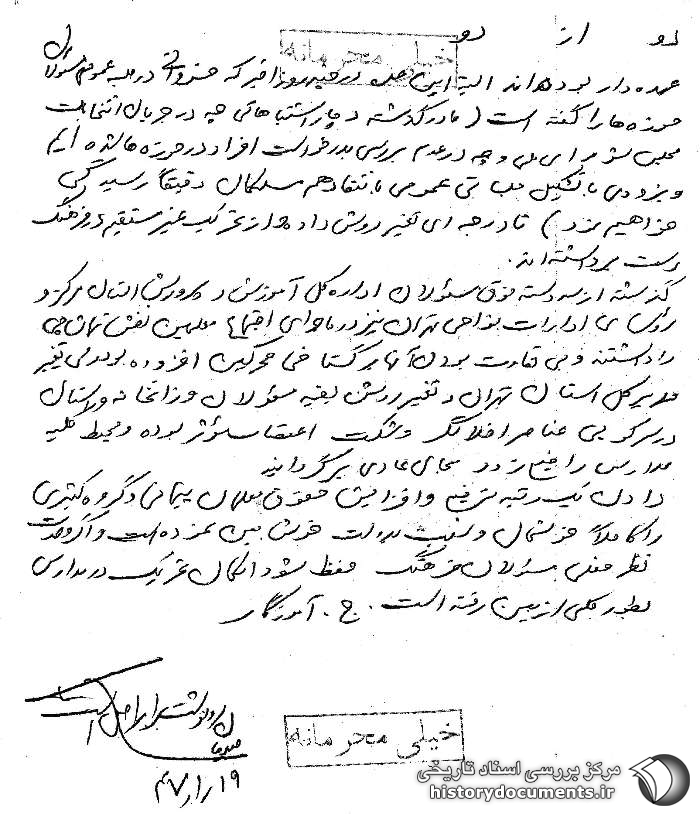 دو از دو
خیلی محرمانه
عهده‌دار بوده‌اند البته این عده در چند روز اخیر که در جلسه عمومی مسئولان
حوزه‌ها را گفته است ( ما در گذشته دچار اشتباهاتی چه در جریان انتخابات
مجلس شورای ملی و چه در عدم بررسی بدرخواست افراد در حوزه‌ها شده‌ایم
و بزودی با تشکیل جلساتی عمومی با انتقاد هم مسلکان دقیقاً رسیدگی
خواهیم نمود ) تا درجه‌ای تغییر روش داده و از تحریکات غیر مستقیم در فرهنگ
دست برداشته‌اند.
گذشته از سه دسته فوق مسئولان اداره کل آموزش و پرورش استان مرکز و
رؤسای ادارات نواحی تهران نیز در ماجرای اجتماع معلمین نقش
را داشتند و بی تفاوت بودن آنها بر گستاخی محرکین افزوده بود ولی تغییر
مدیر کل استان تهران و تغییر روش بقیه مسئولان وزارتخانه و استان
در سرکوبی عناصر اخلالگر و شکست اعتصاب مؤثر بوده و محیط کلیه
مدارس را خیلی زود بحالت عادی برگردانید
دادن یک رتبه ترفیع و افزایش حقوق معلمان پیمانی گروه کثیری
را کاملاً خوشحال و نسبت بدولت خوش بین نموده است و اگر وحدت
نظر فعلی مسئولان فرهنگ حفظ شود امکان تحریک در مدارس
بطور کلی از بین رفته است. ج. آموزگار
رونوشت برابر اصل است
۱۹ر۱ر۴۷
خیلی محرمانه
مرکز بررسی اسناد تاریخی
historydocuments.ir